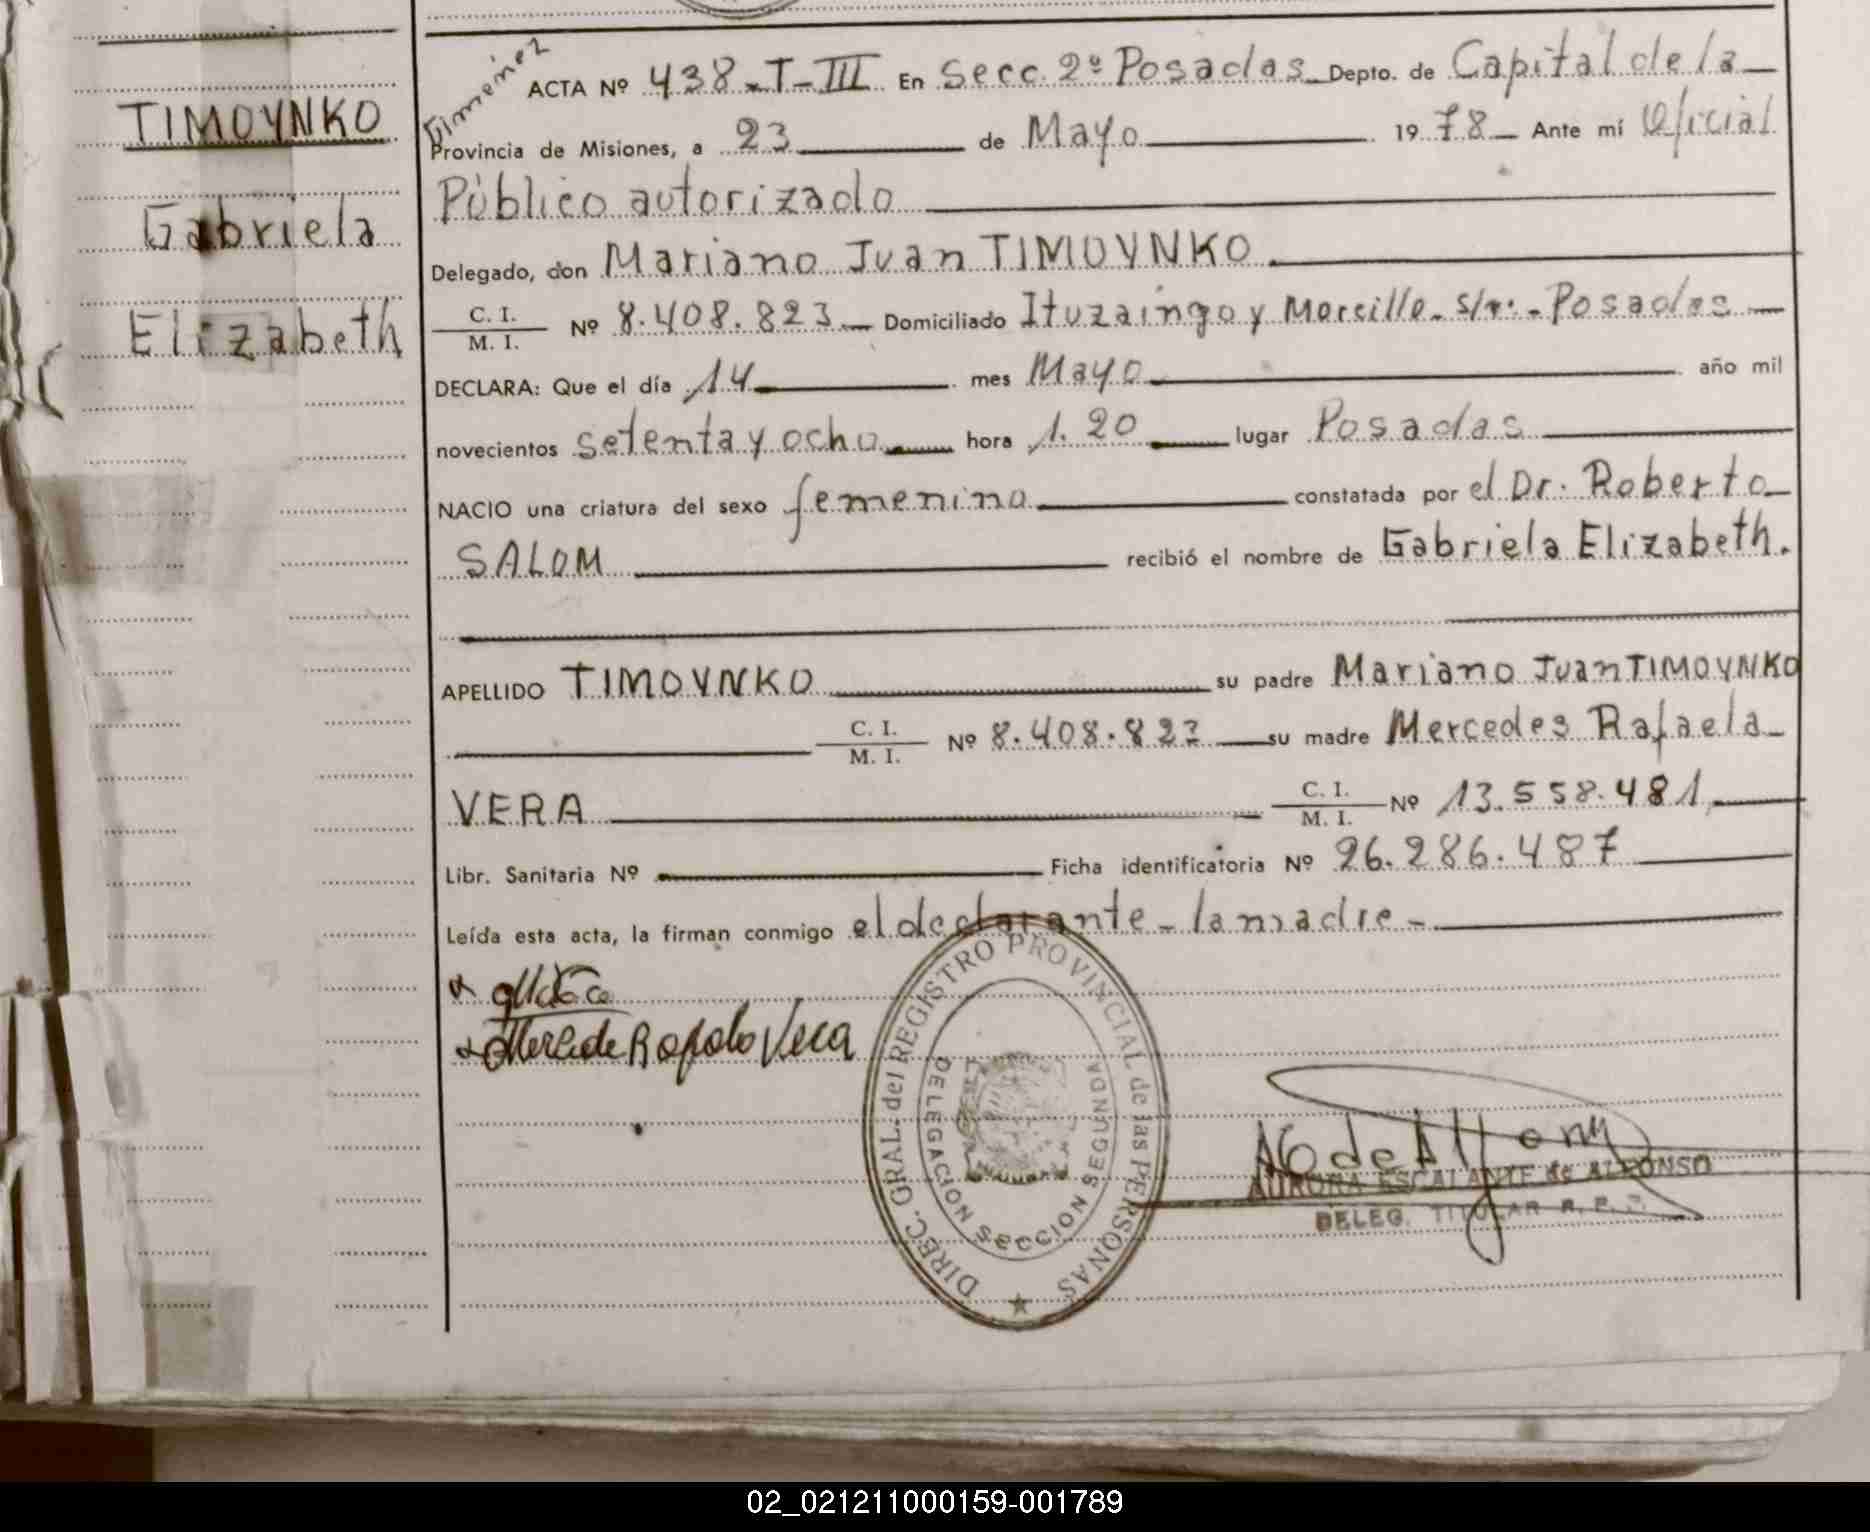 TIMOYNKO
Gabriela
Elizabeth
Gimenez
ACTA Nº 438-T-III En Secc. 2º Posadas Depto. de Capital de la
Provincia de Misiones, a 23 de Mayo 1978 Ante mí Oficial
Público autorizado
Delegado, don Mariano Juan TIMOYNKO
C. I.
M. I.
Nº 8.408.823 Domiciliado Ituzaingo y Morcillo - s/n: - Posadas
DECLARA: Que el día 14 mes Mayo año mil
novecientos setenta y ocho hora 1.20 lugar Posadas
NACIO una criatura del sexo femenino constatada por el Dr. Roberto
SALOM recibió el nombre de Gabriela Elizabeth.
APELLIDO TIMOYNKO su padre Mariano Juan TIMOYNKO
C. I.
M. I.
Nº 8.408.823 su madre Mercedes Rafaela
VERA
C. I.
M. I.
Nº 13.558.481
Libr. Sanitaria Nº Ficha identificatoria Nº 26.286.487
Leída esta acta, la firman conmigo el declarante - la madre -
Mercede Rafaela Vera
DIREC. GRAL. del REGISTRO PROVINCIAL de las PERSONAS
DELEGACION SECCION SEGUNDA
AURORA ESCALANTE de ALFONSO
DELEG. TITULAR R. P. P.
02_021211000159-001789